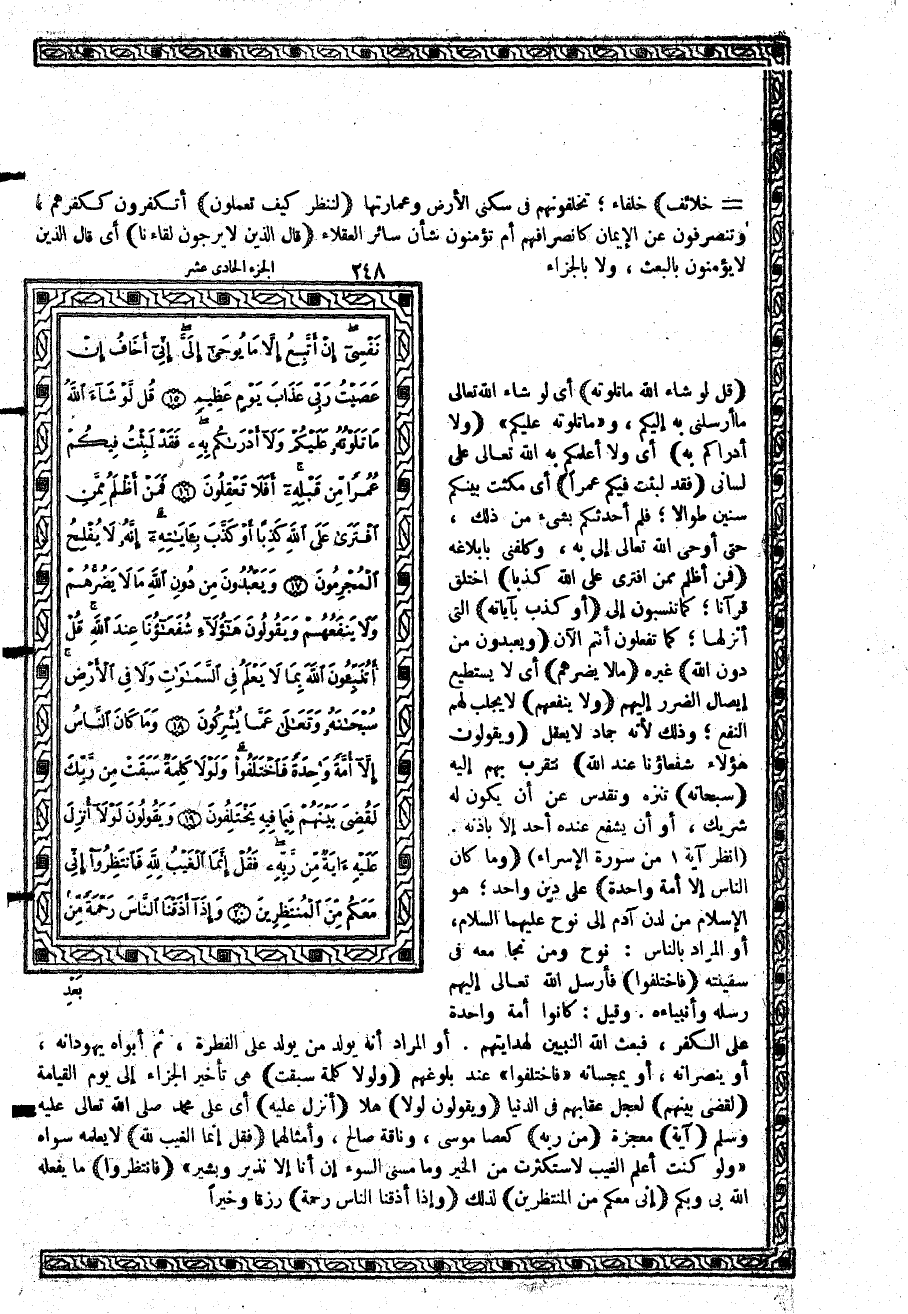 = خلائف) خلفاء ؛ تخلفونهم فى سكنى الأرض وعمارتها (لننظر كيف تعملون) أتكفرون ككفرهم ،
وتنصرفون عن الإيمان كانصرافهم أم تؤمنون شأن سائر العقلاء (قال الذين لا يرجون لقاءنا) أى قال الذين
لا يؤمنون بالبعث ، ولا بالجزاء
٢٤٨
الجزء الحادى عشر
نَفْسِىٓ ۖ إِنْ أَتَّبِعُ إِلَّا مَا يُوحَىٰٓ إِلَىَّ ۖ إِنِّىٓ أَخَافُ إِنْ
عَصَيْتُ رَبِّى عَذَابَ يَوْمٍ عَظِيمٍ ⑮ قُل لَّوْ شَآءَ ٱللَّهُ
مَا تَلَوْتُهُۥ عَلَيْكُمْ وَلَآ أَدْرَىٰكُم بِهِۦ ۖ فَقَدْ لَبِثْتُ فِيكُمْ
عُمُرًا مِّن قَبْلِهِۦٓ ۚ أَفَلَا تَعْقِلُونَ ⑯ فَمَنْ أَظْلَمُ مِمَّنِ
ٱفْتَرَىٰ عَلَى ٱللَّهِ كَذِبًا أَوْ كَذَّبَ بِـَٔايَـٰتِهِۦٓ ۚ إِنَّهُۥ لَا يُفْلِحُ
ٱلْمُجْرِمُونَ ⑰ وَيَعْبُدُونَ مِن دُونِ ٱللَّهِ مَا لَا يَضُرُّهُمْ
وَلَا يَنفَعُهُمْ وَيَقُولُونَ هَـٰٓؤُلَآءِ شُفَعَـٰٓؤُنَا عِندَ ٱللَّهِ ۚ قُلْ
أَتُنَبِّـُٔونَ ٱللَّهَ بِمَا لَا يَعْلَمُ فِى ٱلسَّمَـٰوَٰتِ وَلَا فِى ٱلْأَرْضِ ۚ
سُبْحَـٰنَهُۥ وَتَعَـٰلَىٰ عَمَّا يُشْرِكُونَ ⑱ وَمَا كَانَ ٱلنَّاسُ
إِلَّآ أُمَّةً وَٰحِدَةً فَٱخْتَلَفُوا۟ ۚ وَلَوْلَا كَلِمَةٌ سَبَقَتْ مِن رَّبِّكَ
لَقُضِىَ بَيْنَهُمْ فِيمَا فِيهِ يَخْتَلِفُونَ ⑲ وَيَقُولُونَ لَوْلَآ أُنزِلَ
عَلَيْهِ ءَايَةٌ مِّن رَّبِّهِۦ ۖ فَقُلْ إِنَّمَا ٱلْغَيْبُ لِلَّهِ فَٱنتَظِرُوٓا۟ إِنِّى
مَعَكُم مِّنَ ٱلْمُنتَظِرِينَ ⑳ وَإِذَآ أَذَقْنَا ٱلنَّاسَ رَحْمَةً مِّنۢ
بَعْدِ
(قل لو شاء الله ماتلوته) أى لو شاء الله تعالى
ماأرسلنى به إليكم ، و«ماتلوته عليكم» (ولا
أدراكم به) أى ولا أعلمكم به الله تعالى على
لسانى (فقد لبثت فيكم عمراً) أى مكثت بينكم
سنين طوالا ؛ فلم أحدثكم بشىء من ذلك ،
حتى أوحى الله تعالى إلى به ، وكلفنى بابلاغه
(فمن أظلم ممن افترى على الله كذبا) اختلق
قرآنا ؛ كماتنسبون إلى (أو كذب بآياته) التى
أنزلها ؛ كما تفعلون أنتم الآن (ويعبدون من
دون الله) غيره (مالا يضرهم) أى لا يستطيع
إيصال الضرر إليهم (ولا ينفعهم) لايجلب لهم
النفع ؛ وذلك لأنه جماد لايعقل (ويقولون
هؤلاء شفعاؤنا عند الله) نتقرب بهم إليه
(سبحانه) تنزه وتقدس عن أن يكون له
شريك ، أو أن يشفع عنده أحد إلا باذنه .
(انظر آية ١ من سورة الإسراء) (وما كان
الناس إلا أمة واحدة) على دين واحد ؛ هو
الإسلام من لدن آدم إلى نوح عليهما السلام،
أو المراد بالناس : نوح ومن نجا معه فى
سفينته (فاختلفوا) فأرسل الله تعالى إليهم
رسله وأنبياءه . وقيل : كانوا أمة واحدة
على الكفر ، فبعث الله النبيين لهدايتهم . أو المراد أنه يولد من يولد على الفطرة ، ثم أبواه يهودانه ،
أو ينصرانه ، أو يمجسانه «فاختلفوا» عند بلوغهم (ولولا كلمة سبقت) هى تأخير الجزاء إلى يوم القيامة
(لقضى بينهم) لعجل عقابهم فى الدنيا (ويقولون لولا) هلا (أنزل عليه) أى على محمد صلى الله تعالى عليه
وسلم (آية) معجزة (من ربه) كعصا موسى ، وناقة صالح ، وأمثالهما (فقل إنما الغيب لله) لايعلمه سواه
«ولو كنت أعلم الغيب لاستكثرت من الخير وما مسنى السوء إن أنا إلا نذير وبشير» (فانتظروا) ما يفعله
الله بى وبكم (إنى معكم من المنتظرين) لذلك (وإذا أذقنا الناس رحمة) رزقا وخيراً